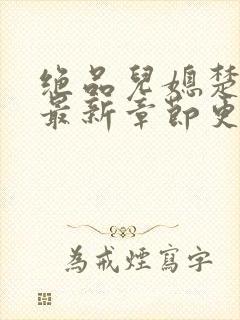 绝品兒媳楚
最新章節史
為戒煙寫字